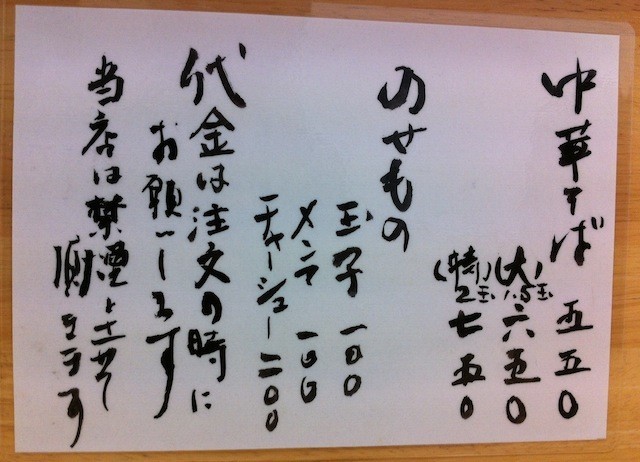 中華そば 五五〇
(大)1.5玉 六五〇
(特)2玉 七五〇
のせもの
玉子 一〇〇
メンマ 一〇〇
チャーシュー 二〇〇
代金は注文の時に
お願いします
当店は禁煙とさせて
頂きます